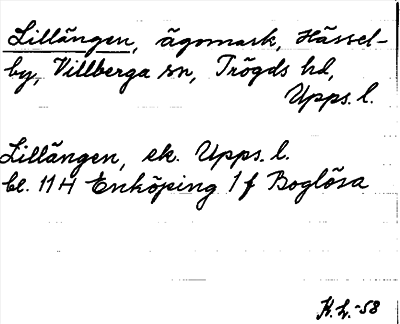 Lillängen, ägomark, Hässel-
by, Villberga sn, Trögds hd,
Upps. l.
Lillängen, ek. Upps. l.
bl. 11H Enköping 1f Boglösa
K.L.-58